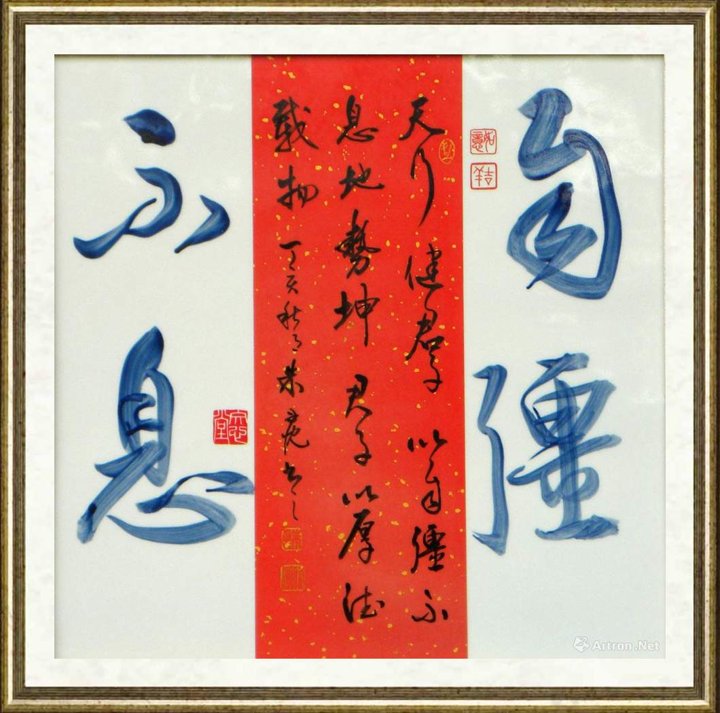 自彊
不息
天行健君子以自彊不
息地勢坤君子以厚德
載物丁亥秋月朱虎书之
Artron.Net